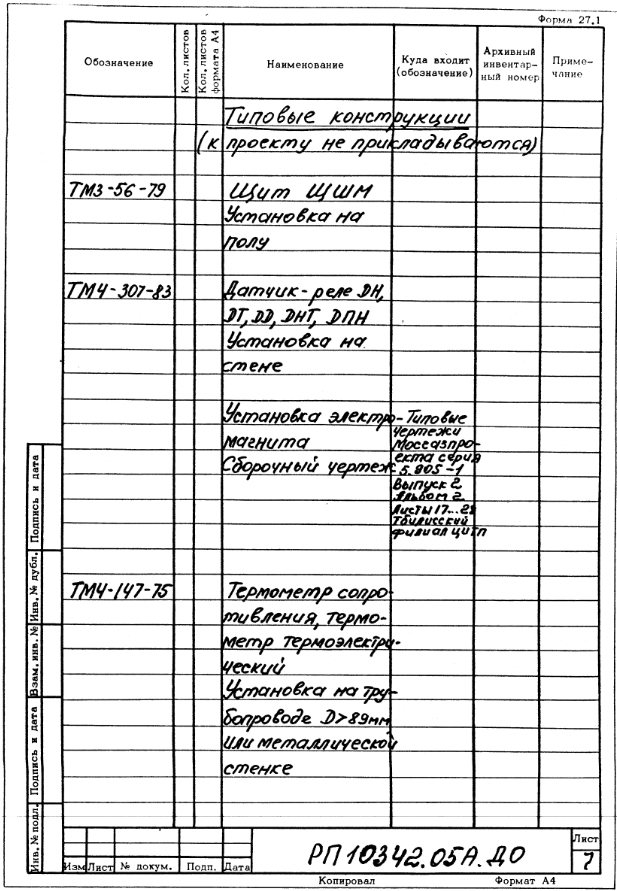 Форма 27.1
Обозначение
Кол. листов
Кол. листов формата А4
Наименование
Куда входит (обозначение)
Архивный инвентарный номер
Примечание
Типовые конструкции
(к проекту не прикладываются)
ТМ3-56-79 Щит ЩШМ
Установка на
полу
ТМ4-307-83 Датчик-реле ДН,
ДТ, ДД, ДНТ, ДПН
Установка на
стене
Установка электро- Типовые
чертежи
магнита Мосгазпро-
екта серия
Сборочный чертеж 5.905-1
Выпуск 2
Альбом 2
Листы 17...28
Тбилисский
филиал ЦИТП
ТМ4-147-75 Термометр сопро-
тивления, термо-
метр термоэлектри-
ческий
Установка на тру-
бопроводе D>89мм
или металлической
стенке
Инв. № подл.
Подпись и дата
Взам. инв. №
Инв. № дубл.
Подпись и дата
Изм Лист № докум. Подп. Дата
РП10342.05А.ДО
Лист
7
Копировал Формат А4